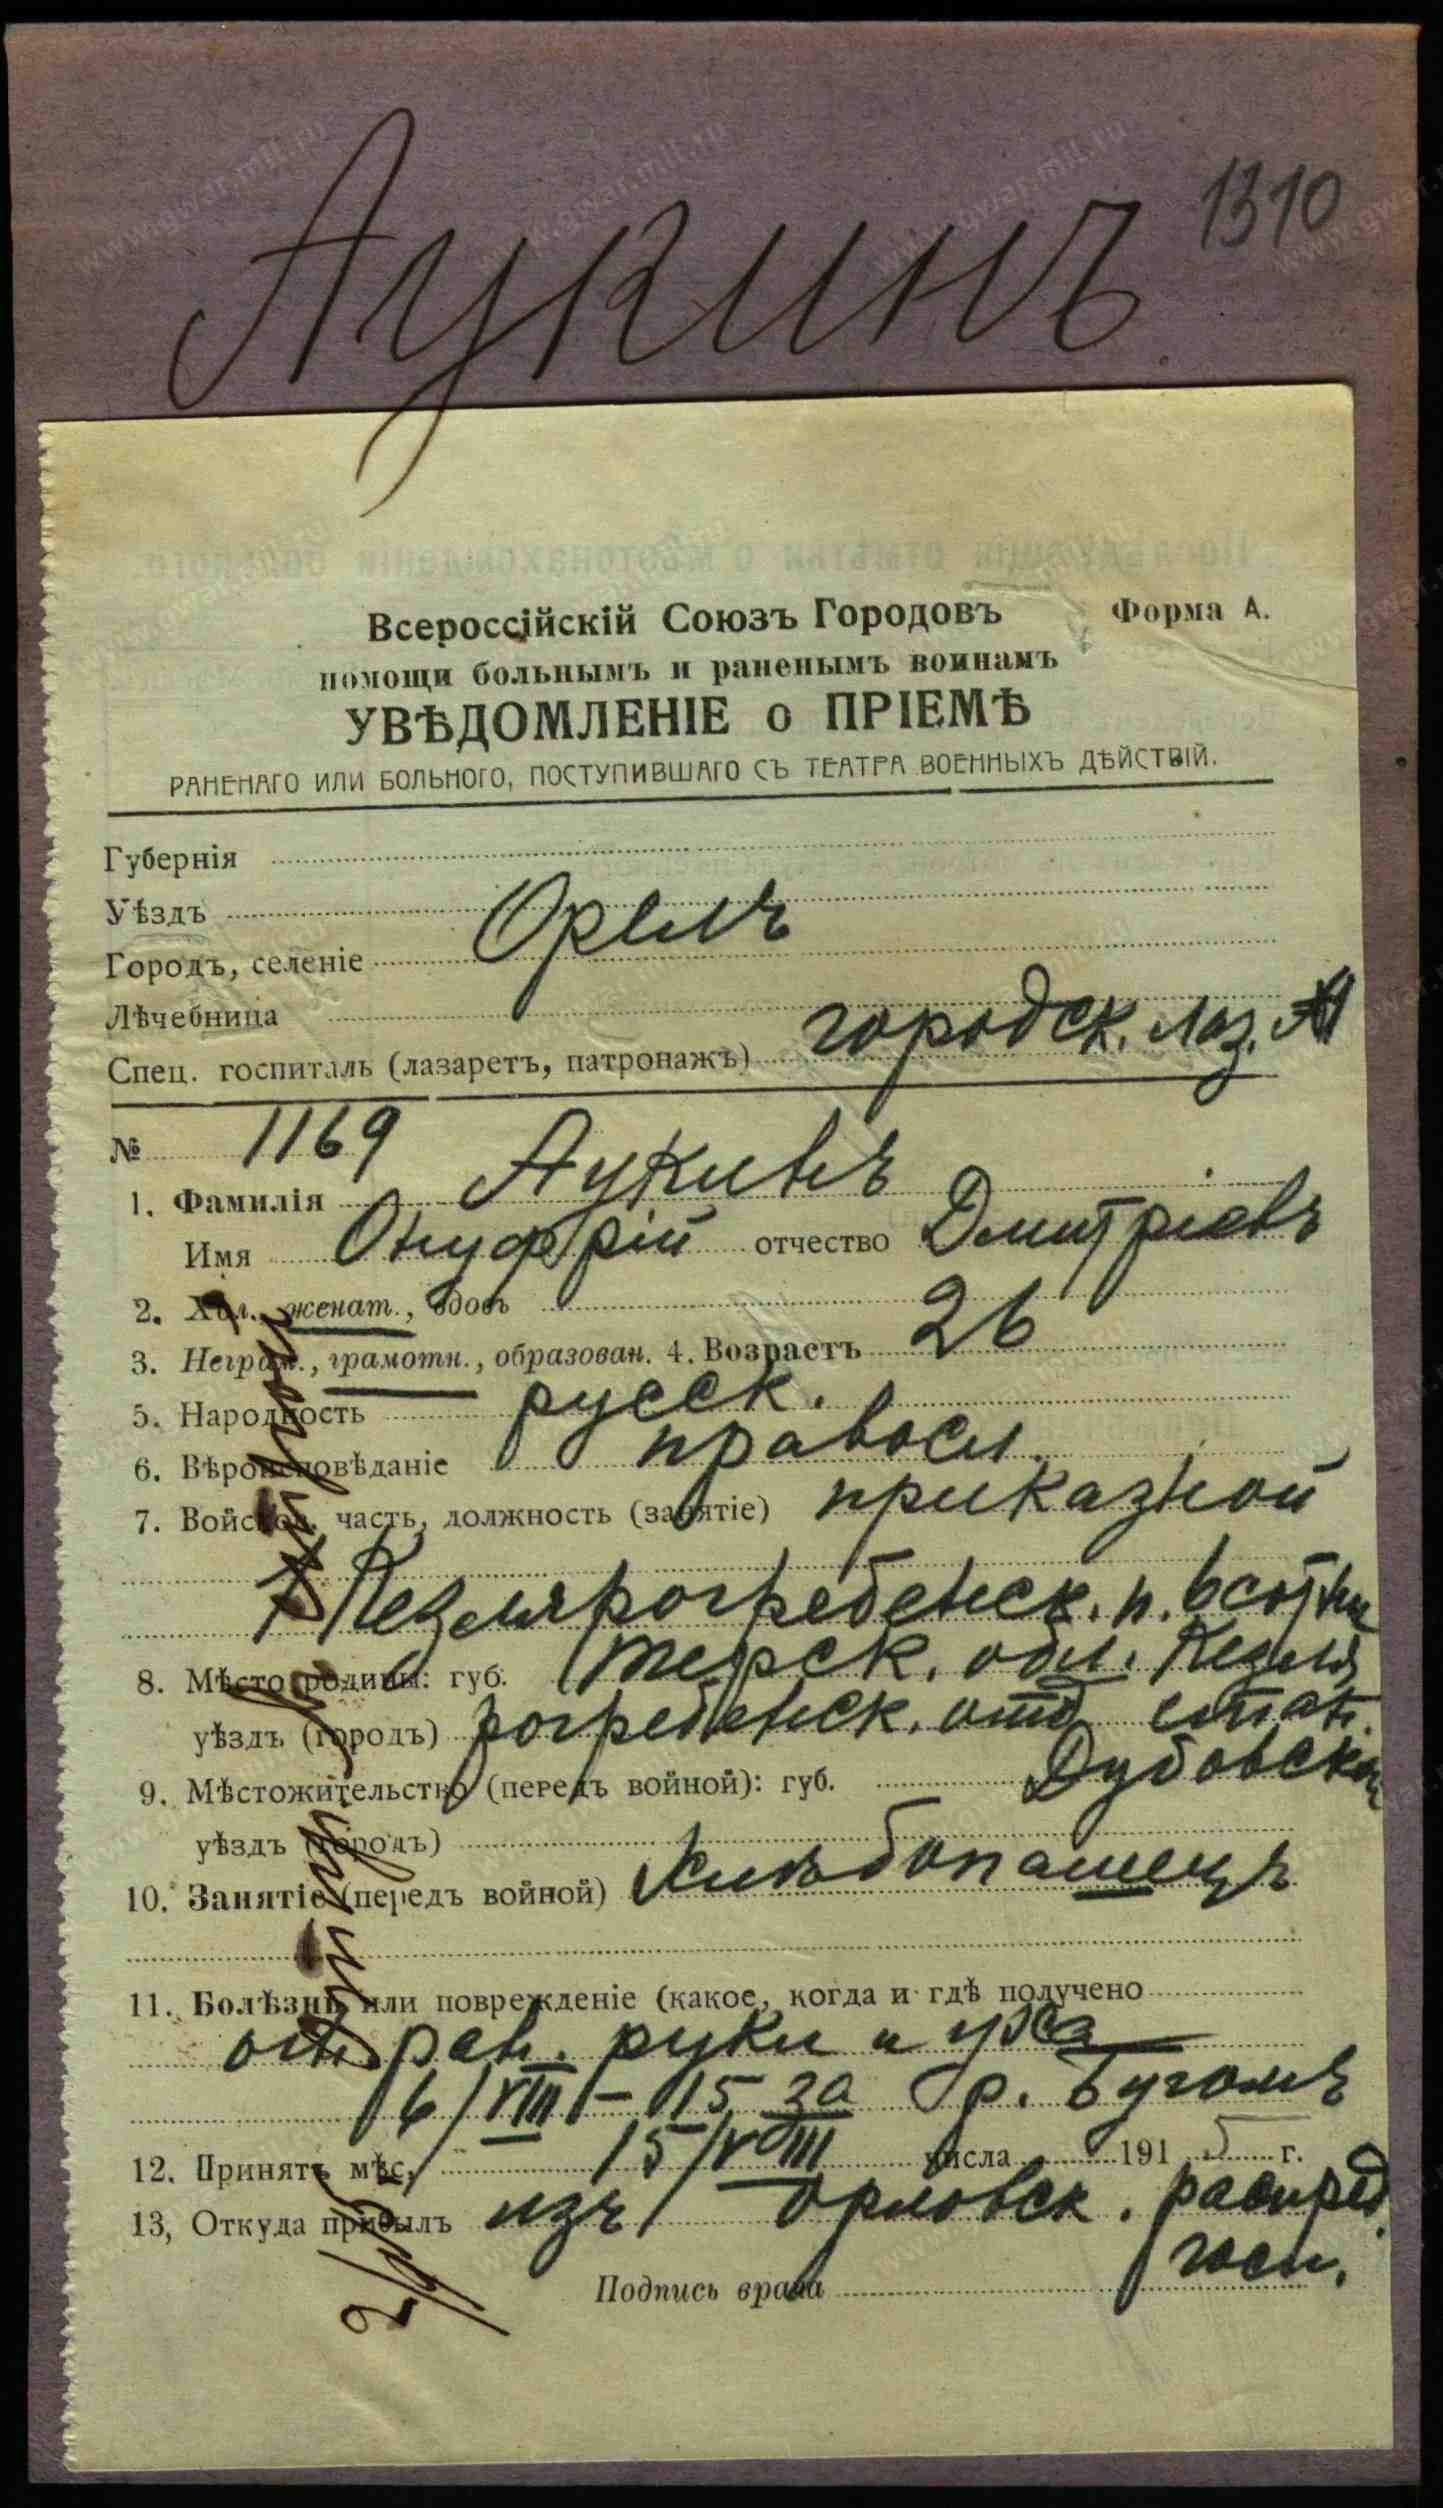 Аукинъ
1310
Всероссійскій Союзъ Городовъ
Форма А.
помощи больнымъ и раненымъ воинамъ
УВѢДОМЛЕНІЕ о ПРІЕМѢ
РАНЕНАГО ИЛИ БОЛЬНОГО, ПОСТУПИВШАГО СЪ ТЕАТРА ВОЕННЫХЪ ДѢЙСТВІЙ.
Губернія
Уѣздъ
Городъ, селеніе Орелъ
Лѣчебница
Спец. госпиталь (лазаретъ, патронажъ) городск. лаз.
№ 1169
1. Фамилія Аукинъ
Имя Онуфрій отчество Дмитріевъ
2. Хол., женат., вдовъ
3. Неграм., грамотн., образован. 4. Возрастъ 26
5. Народность русск.
6. Вѣроисповѣданіе правосл.
7. Войсков. часть, должность (занятіе) приказной
1 Кезлярогребенск. п. 6 сотни
8. Мѣсто родины: губ. Терск. обл. Кезля
уѣздъ (городъ) рогребенск. отд. стан.
9. Мѣстожительство (передъ войной): губ. Дубовской
уѣздъ (городъ)
10. Занятіе (передъ войной) Хлѣбопашецъ
11. Болѣзнь или поврежденіе (какое, когда и гдѣ получено
ран. руки и уха
6/VIII - 15 за р. Бугомъ
12. Принятъ мѣс. 15/VIII числа 1915 г.
13, Откуда прибылъ изъ Орловск. распред.
госп.
Подпись врача